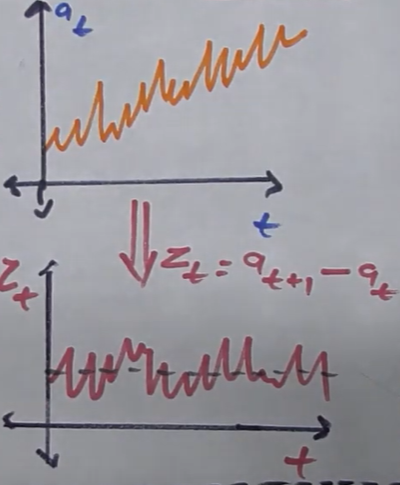 a_t
t
z_t = a_{t+1} - a_t
z_t
t